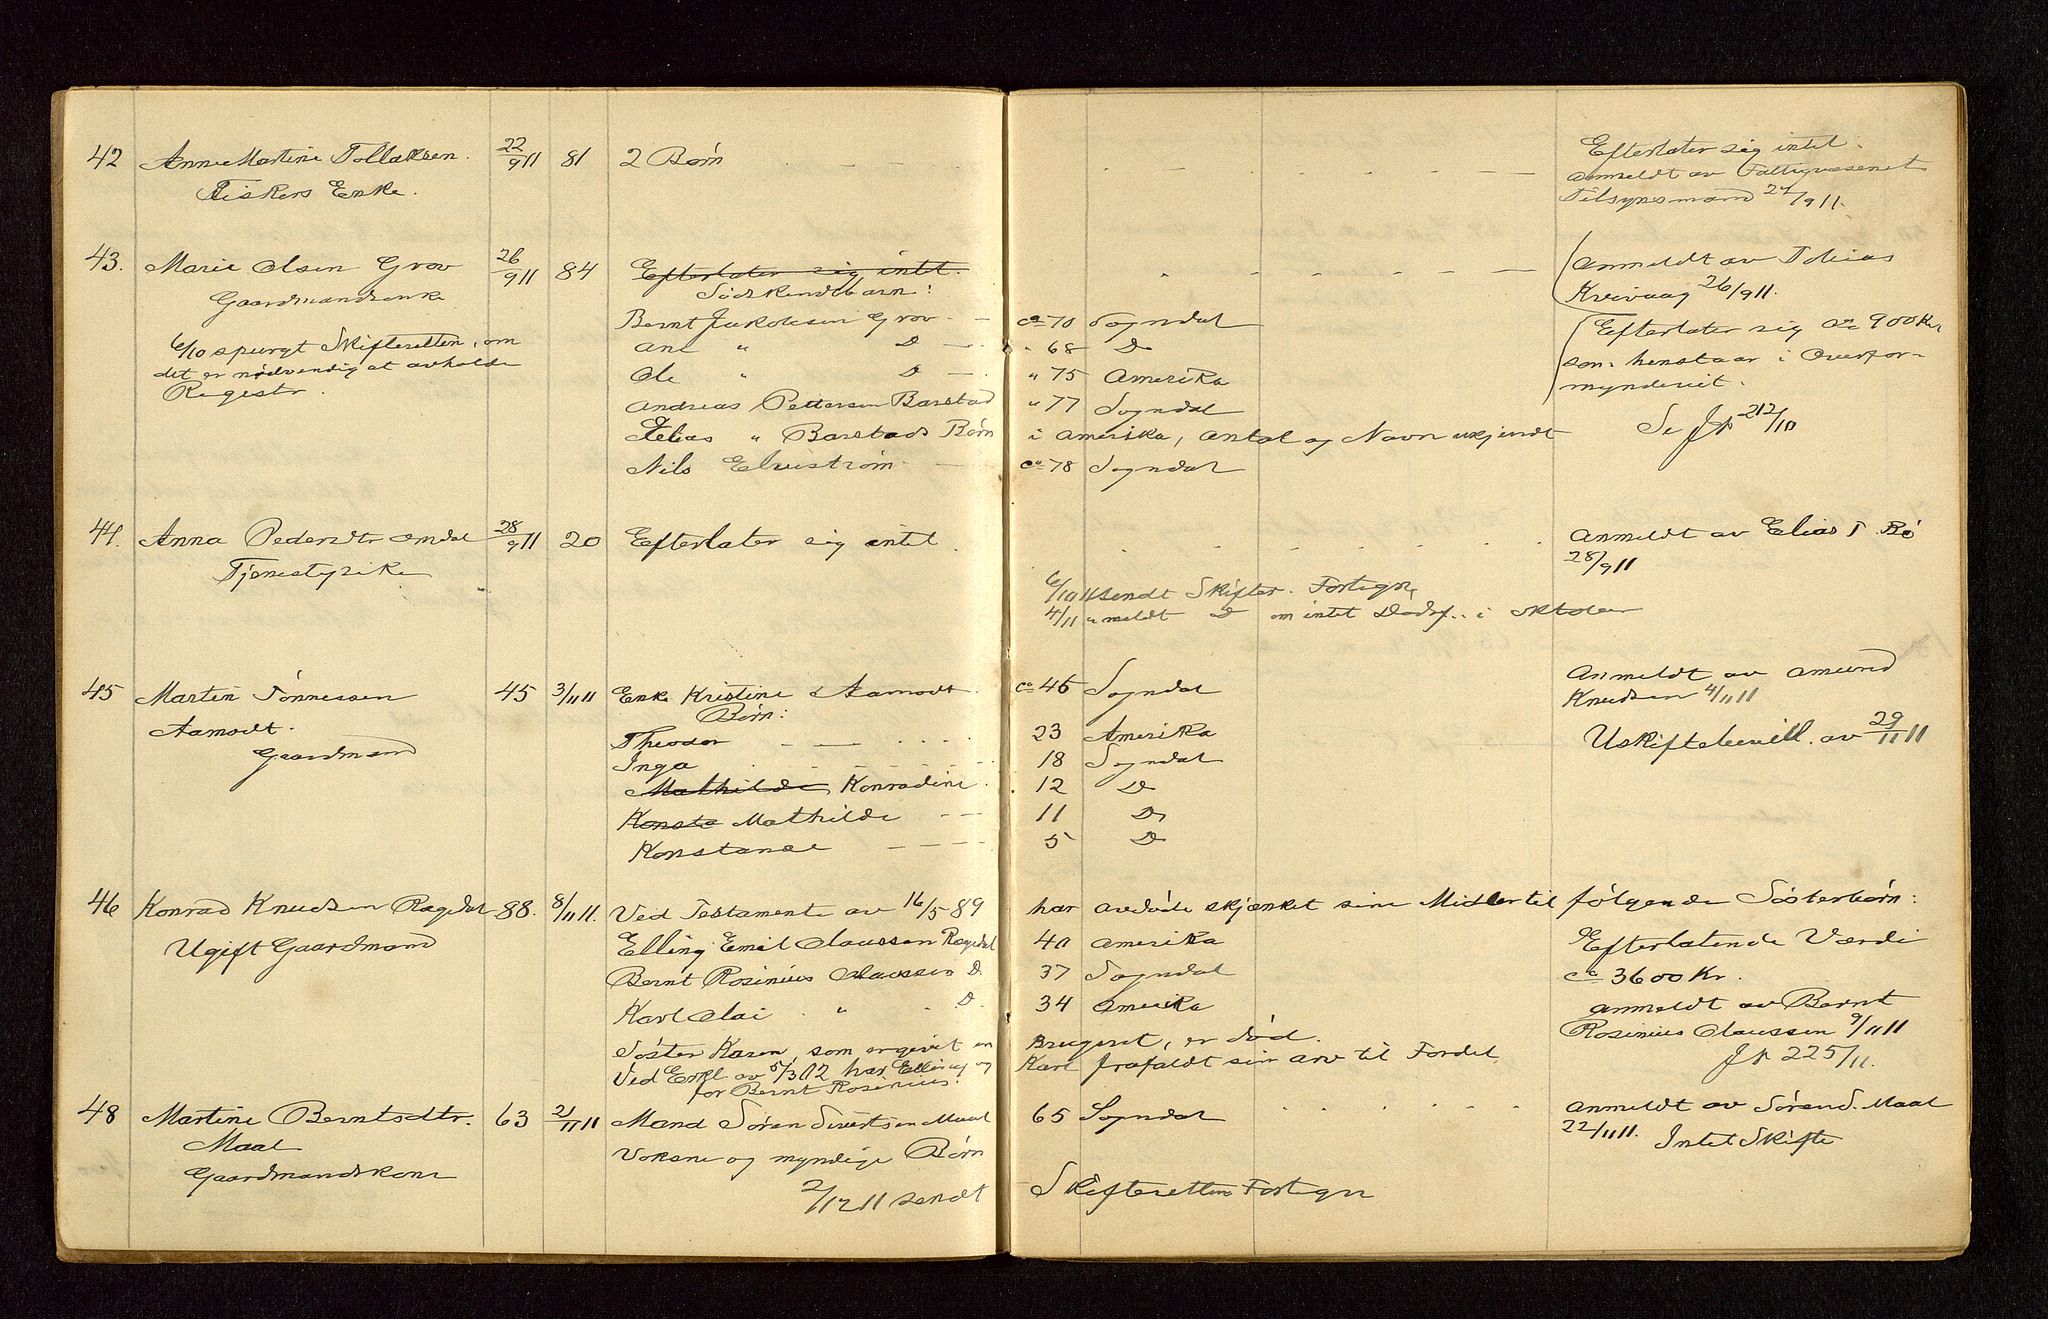 42 Anne Martine Tollaksen. 22/9 11 81 2 Børn Efterlater sig intet.
Fiskers Enke. anmeldt av Fattigvæsenet
Tilsynsmand 27/9 11.
43. Marie Olsen Grov 26/9 11 84 Efterlater sig intet. anmeldt av Tobias
Gaardmandsenke Sødskendebarn: Kvivaag 26/9 11.
Bernt Jakobsen Grov ca 70 Sogndal Efterlater sig ca 900 Kr,
6/10 spurgt Skifteretten, om Ane " D " 68 D som henstaar i Overfor-
det er nødvendig at avholde Ole " D " 75 Amerika mynderiet.
Registr. Andreas Pettersen Barstad " 77 Sogndal
Elias " Barstads Børn i Amerika, Antal og Navn ukjendt Se Jp 212/10
Nils Elvestrøm ca 78 Sogndal
44. Anna Pedersdtr Omdal 28/9 11 20 Efterlater sig intet. Anmeldt av Elias T. Rø
Tjenestepike 28/9 11
6/10 11 sendt Skifter. Fortegn.
4/11 " meldt D om intet Dødsf. i Oktober
45 Martin Tønnessen 45 3/11 11 Enke Kristine Aamodt ca 46 Sogndal Anmeldt av Amund
Aamodt. Børn: Knudsen 4/11 11
Gaardmand Theodor 23 Amerika Uskiftebevill. av 29/11 11
Inga 18 Sogndal
Mathilde Konradine 12 D
Konsta Mathilde 11 D
Konstanse 5 D
46 Konrad Knudsen Rægedal 88. 8/11 11. Ved Testamente av 16/5 89 har avdøde skjænket sine Midler til følgende Søsterbørn:
Ugift Gaardmand Elling Emil Claussen Rægedal 40 Amerika Efterlatende Værdi
Bernt Rosinius Claussen D. 37 Sogndal ca 3600 Kr.
Karl Olai " D. 34 Amerika anmeldt av Bernt
Søster Karen, som er givet en Brugsret, er død. Rosinius Claussen 9/11 11
Ved Erkl. av 5/3 12 har Elling og Karl frafaldt sin arv til Fordel Jp 225/11.
for Bernt Rosinius.
48 Martine Berntsdtr. 63 21/11 11 Mand Søren Sivertsen Maal 65 Sogndal Anmeldt av Søren S. Maal
Maal Voksne og myndige Børn 22/11 11. Intet Skifte
Gaardmandskone
2/12 11 sendt Skifteretten Fortegn